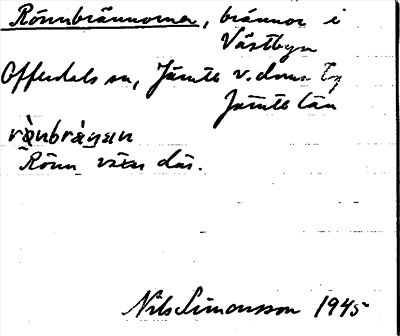 Rönnbrännorna, brännor i
Västbyn
Offerdals sn, Jämts v. dms tg
Jämtl. län
rønbràn̥an
Rönn växer där.
Nils Simonsson 1945